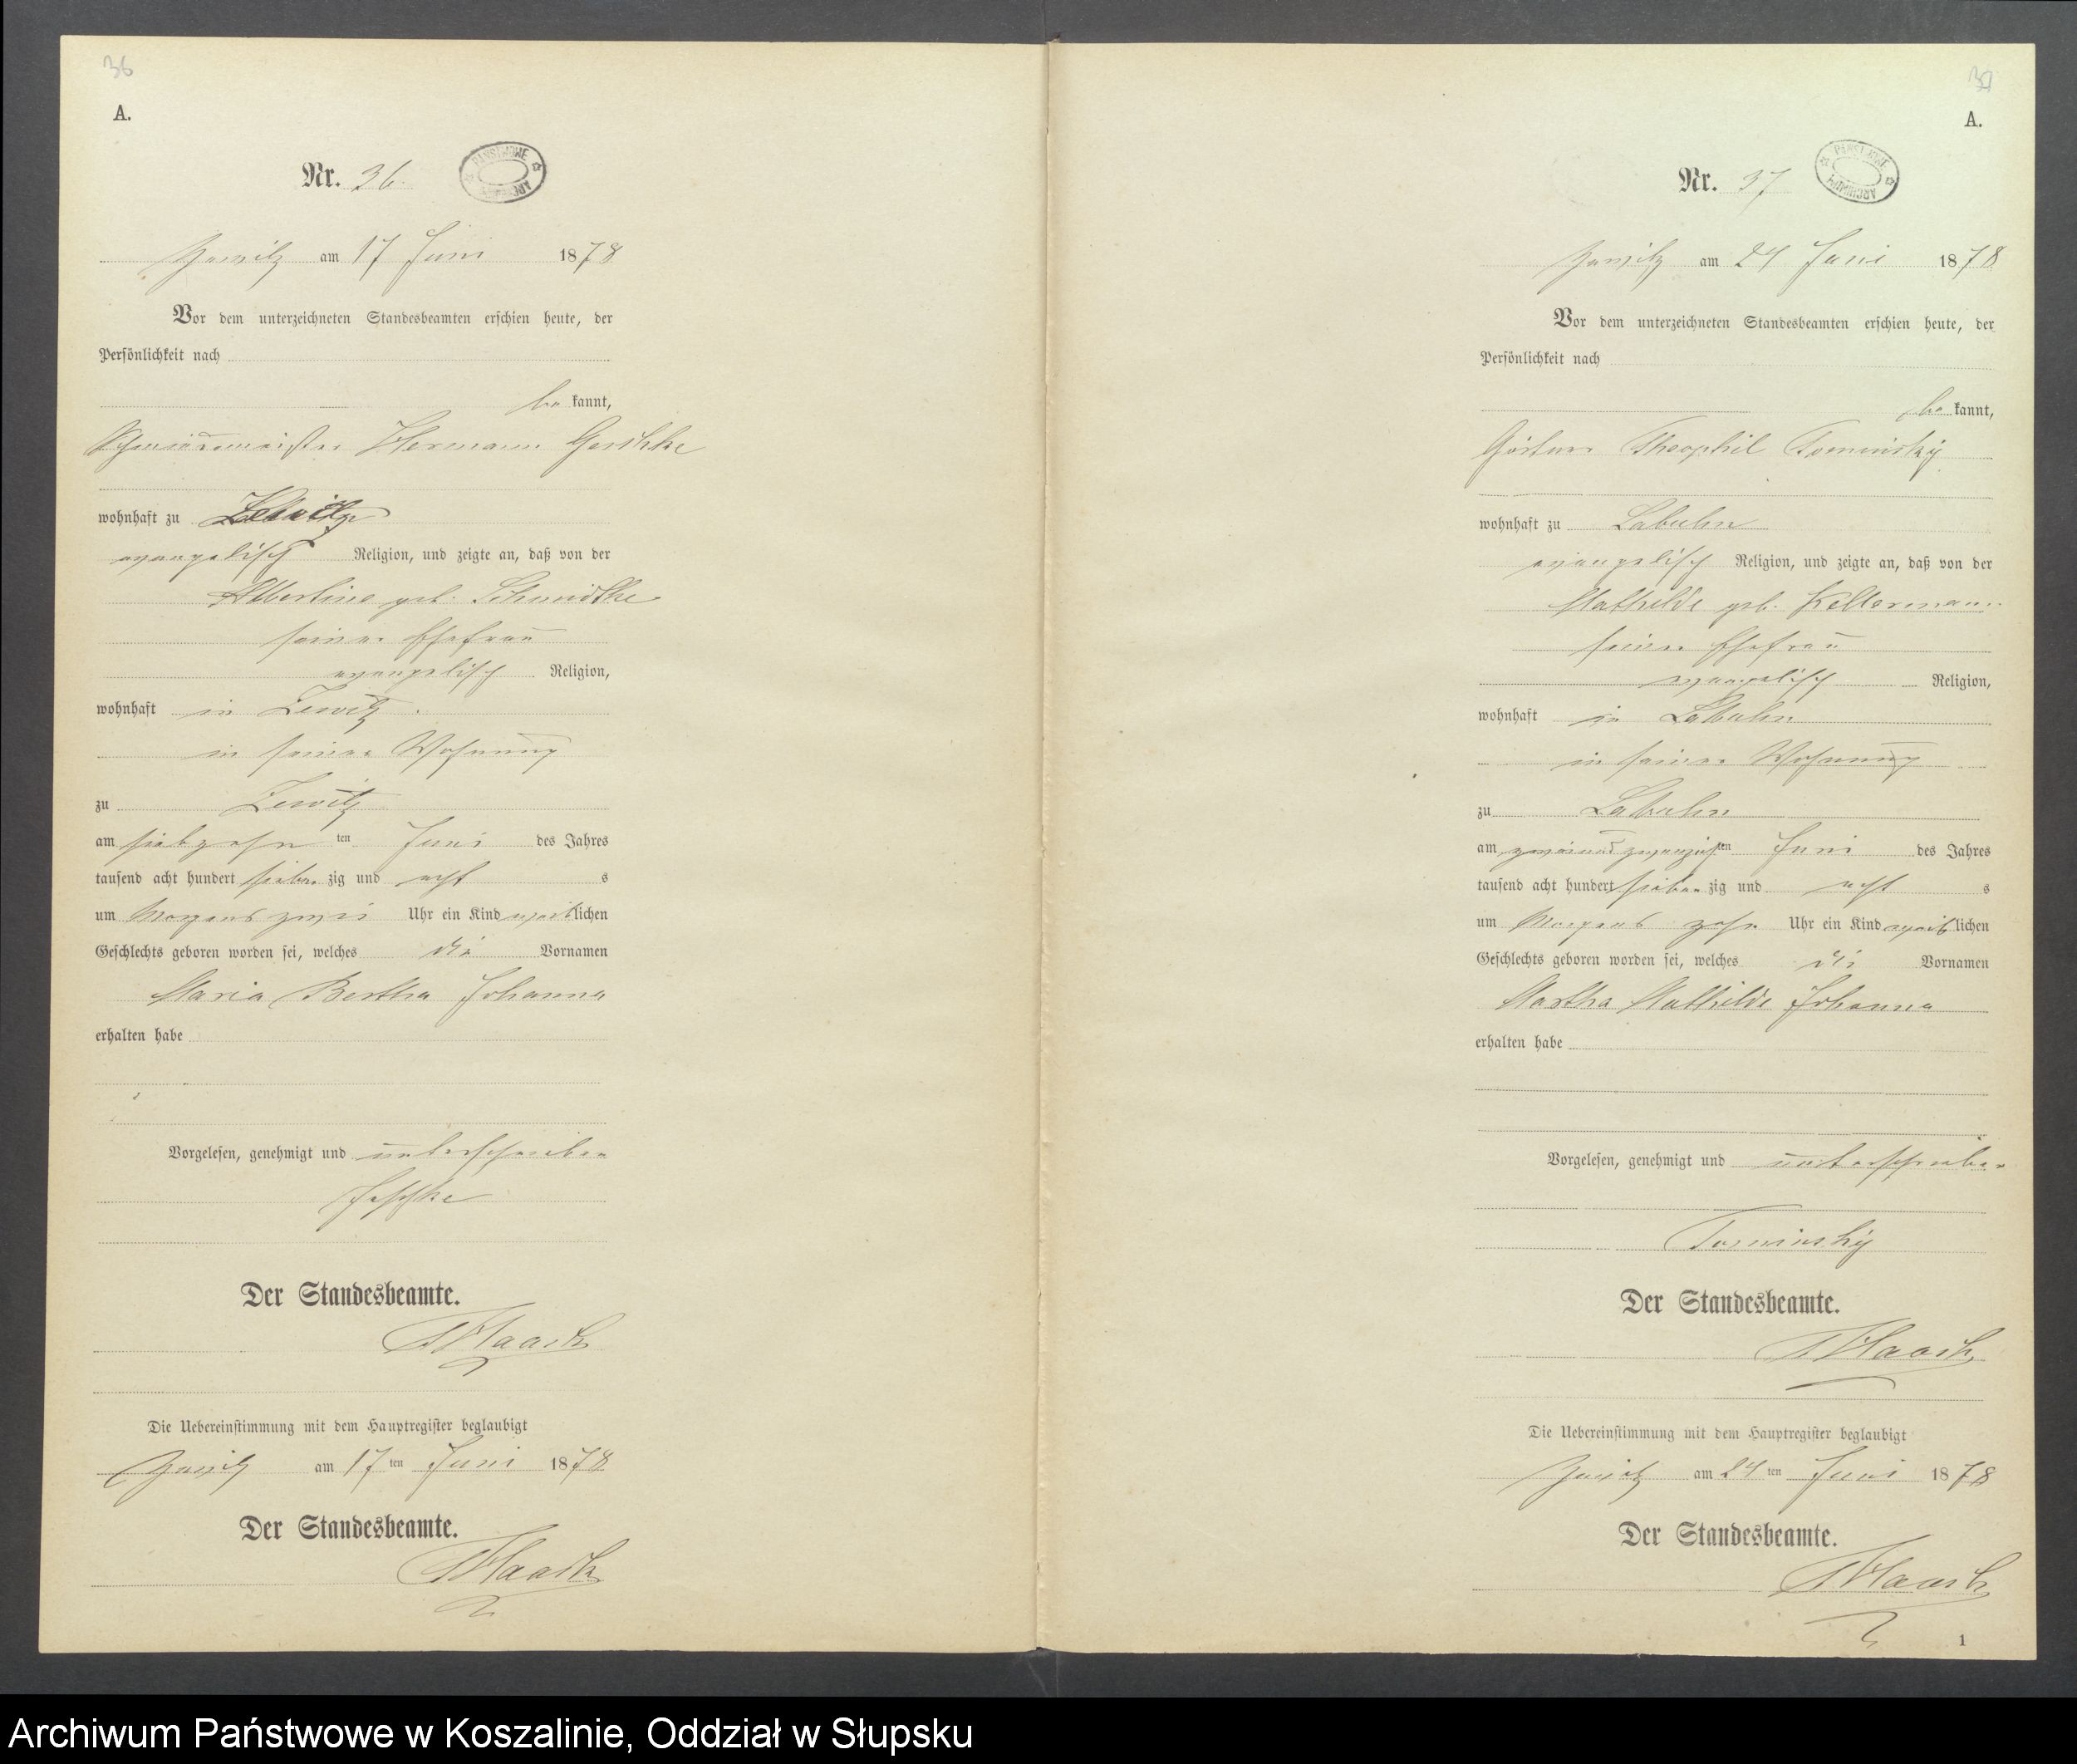 36
A.
Nr. 36.
am 17 Juni 1878
Vor dem unterzeichneten Standesbeamten erschien heute, der
Persönlichkeit nach
be kannt,
Hermann
wohnhaft zu Zewitz
evangelisch Religion, und zeigte an, daß von der
Albertine geb. Schmidtke
seiner Ehefrau
evangelisch Religion,
wohnhaft in Zewitz
in seiner Wohnung
zu Zewitz
am siebzehn ten Juni des Jahres
tausend acht hundert sieben zig und acht s
um Morgens zwei Uhr ein Kind weiblichen
Geschlechts geboren worden sei, welches die Vornamen
Maria Bertha Johanna
erhalten habe
Vorgelesen, genehmigt und unterschrieben
Der Standesbeamte.
Die Uebereinstimmung mit dem Hauptregister beglaubigt
am 17 ten Juni 1878
Der Standesbeamte.
37
A.
Nr. 37
am 24 Juni 1878
Vor dem unterzeichneten Standesbeamten erschien heute, der
Persönlichkeit nach
be kannt,
Theophil Tominsky
wohnhaft zu Labuhn
evangelisch Religion, und zeigte an, daß von der
Mathilde geb. Kellermann
seiner Ehefrau
evangelisch Religion,
wohnhaft in Labuhn
in seiner Wohnung
zu Labuhn
am zweiundzwanzigsten Juni des Jahres
tausend acht hundert sieben zig und acht s
um Morgens zehn Uhr ein Kind weiblichen
Geschlechts geboren worden sei, welches die Vornamen
Martha Mathilde Johanna
erhalten habe
Vorgelesen, genehmigt und unterschrieben
Tominsky
Der Standesbeamte.
Die Uebereinstimmung mit dem Hauptregister beglaubigt
am 24 ten Juni 1878
Der Standesbeamte.
1
Archiwum Państwowe w Koszalinie, Oddział w Słupsku